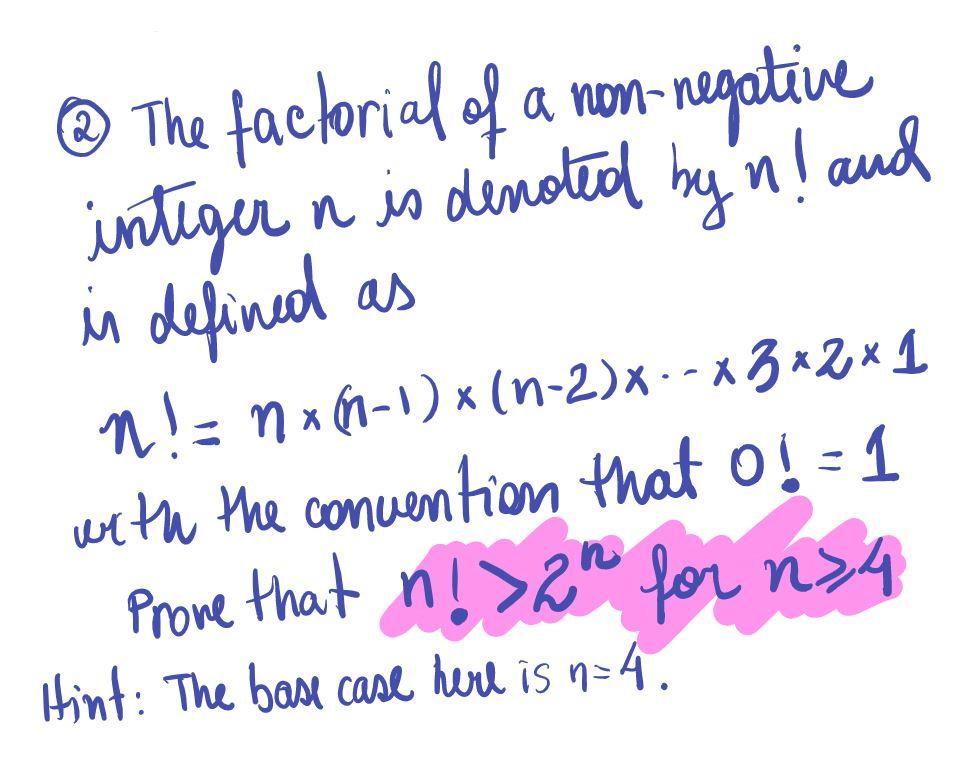 ② The factorial of a non-negative
integer n is denoted by n! and
is defined as
n! = n × (n-1) × (n-2) × ... × 3 × 2 × 1
with the convention that 0! = 1
Prove that n! > 2ⁿ for n ⩾ 4
Hint: The base case here is n=4.